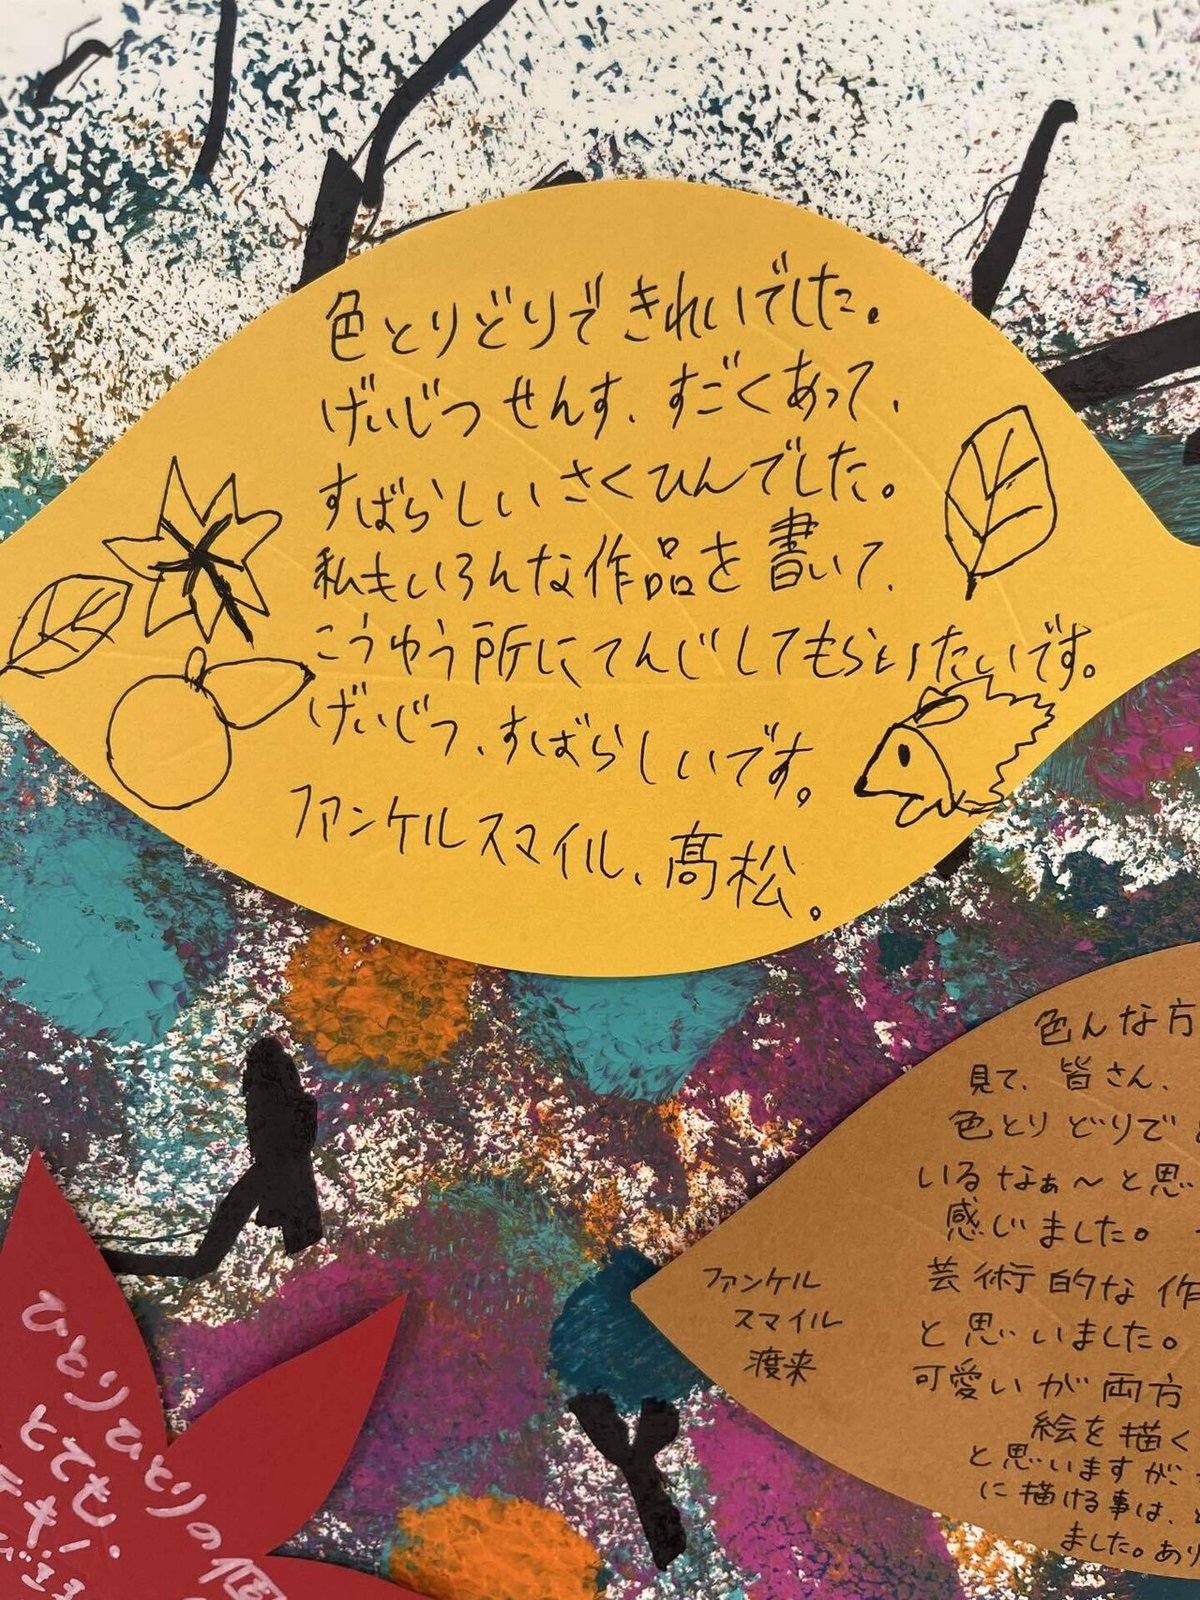 色とりどりできれいでした。
げいじつせんす、すごくあって、
すばらしいさくひんでした。
私もいろんな作品を書いて、
こうゆう所にてんじしてもらいたいです。
げいじつ、すばらしいです。
ファンケルスマイル、髙松。
色んな方
見て、皆さん、
色とりどりで
いるなぁ～と思
感じました。
芸術的な作
と思いました。
可愛いが両方
絵を描く
と思いますが、
に描ける事は、
ました。あり
ファンケル
スマイル
渡来
ひとりひとりの個
とても、